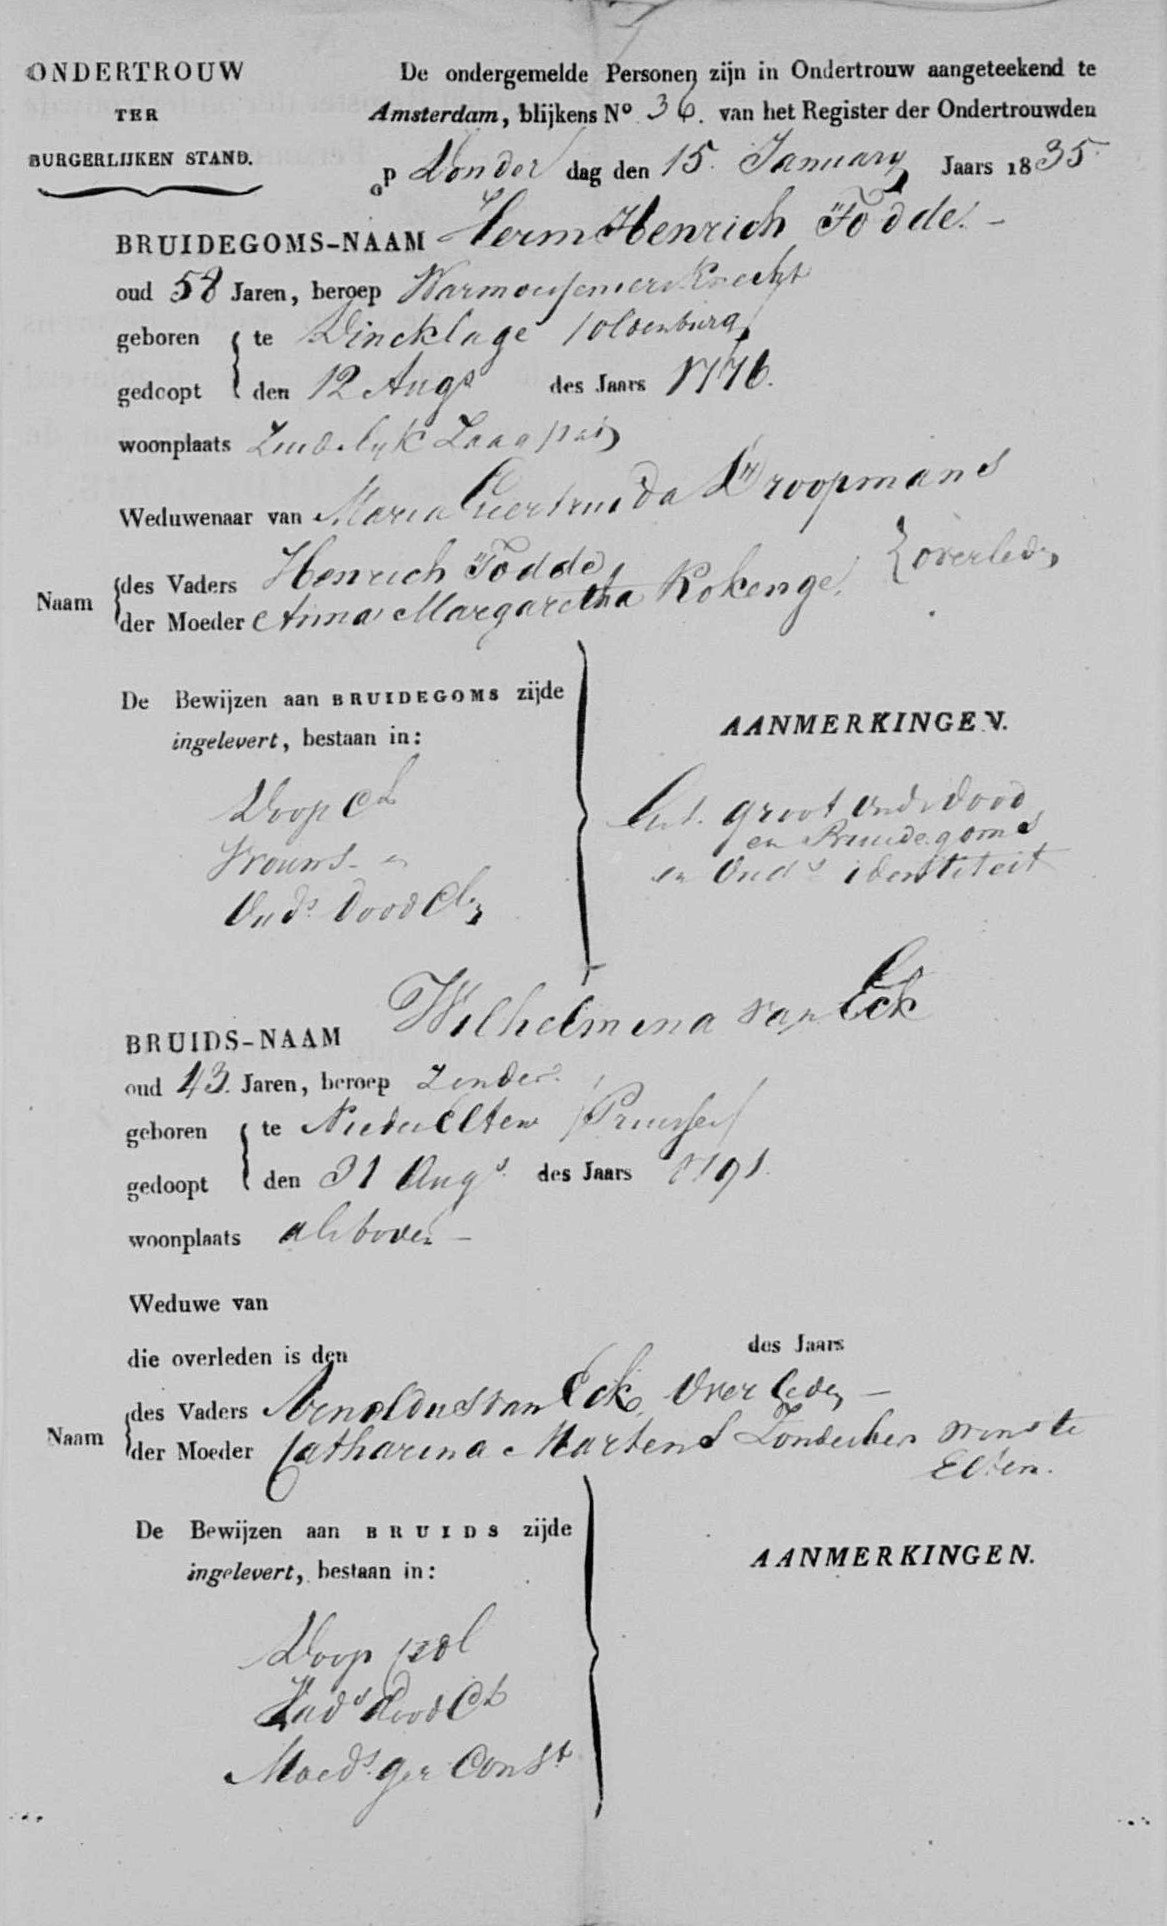 ONDERTROUW
TER
BURGERLIJKEN STAND.
De ondergemelde Personen zijn in Ondertrouw aangeteekend te
Amsterdam, blijkens No. 36. van het Register der Ondertrouwden
op Donder dag den 15. January Jaars 1835.
BRUIDEGOMS-NAAM Herm Henrich Födde. -
oud 58 Jaren, beroep Warmoeseniers Knecht
geboren te Dincklage /oldenburg/
gedoopt den 12 Augs des Jaars 1776.
woonplaats Zuidelyk Zaagpad
Weduwenaar van Maria Geertruida Droopmans
Naam des Vaders Henrich Födde,
der Moeder Anna Margaretha Kokenge. } overleden
De Bewijzen aan BRUIDEGOMS zijde
ingelevert, bestaan in:
Doop Cl
Vrouws - "
Ouds dood Cln
AANMERKINGEN.
groot ouds dood
en Bruidegoms
en Ouds identiteit
BRUIDS-NAAM Wilhelmina van Eck
oud 43. Jaren, beroep Zonder.
geboren te Nieder Elten /Pruissen/
gedoopt den 31 Augs. des Jaars 1791.
woonplaats als boven -
Weduwe van
die overleden is den des Jaars
Naam des Vaders Arnoldus van Eck, Overleden -
der Moeder Catharina Martens Zonder ber woont te
Elten.
De Bewijzen aan BRUIDS zijde
ingelevert, bestaan in:
Doop
Vads dood Cl
Moeds. ger Const
AANMERKINGEN.